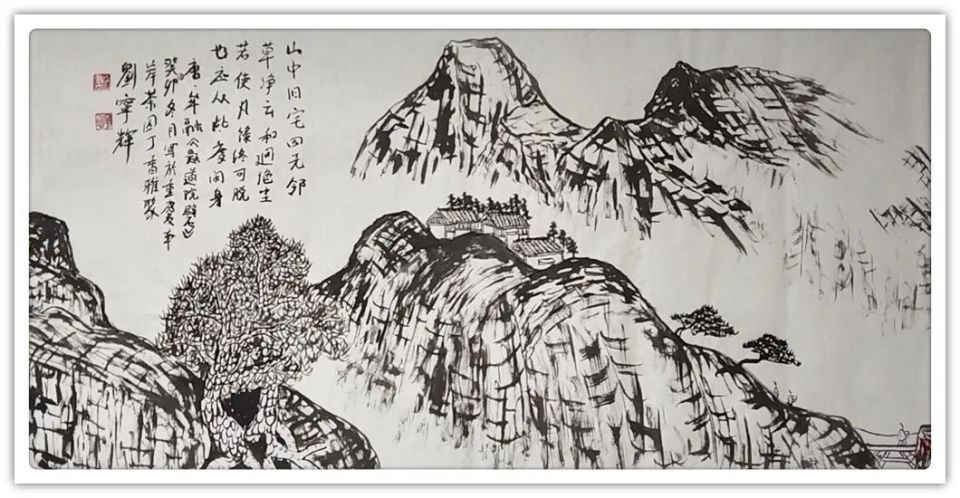 山中旧宅四无邻
草净云和迥绝尘
若使凡缘终可脱
也应从此度闲身
唐牟融题道院壁
癸卯冬月写於重庆南
岸茶园丁香雅聚
劉寧輝